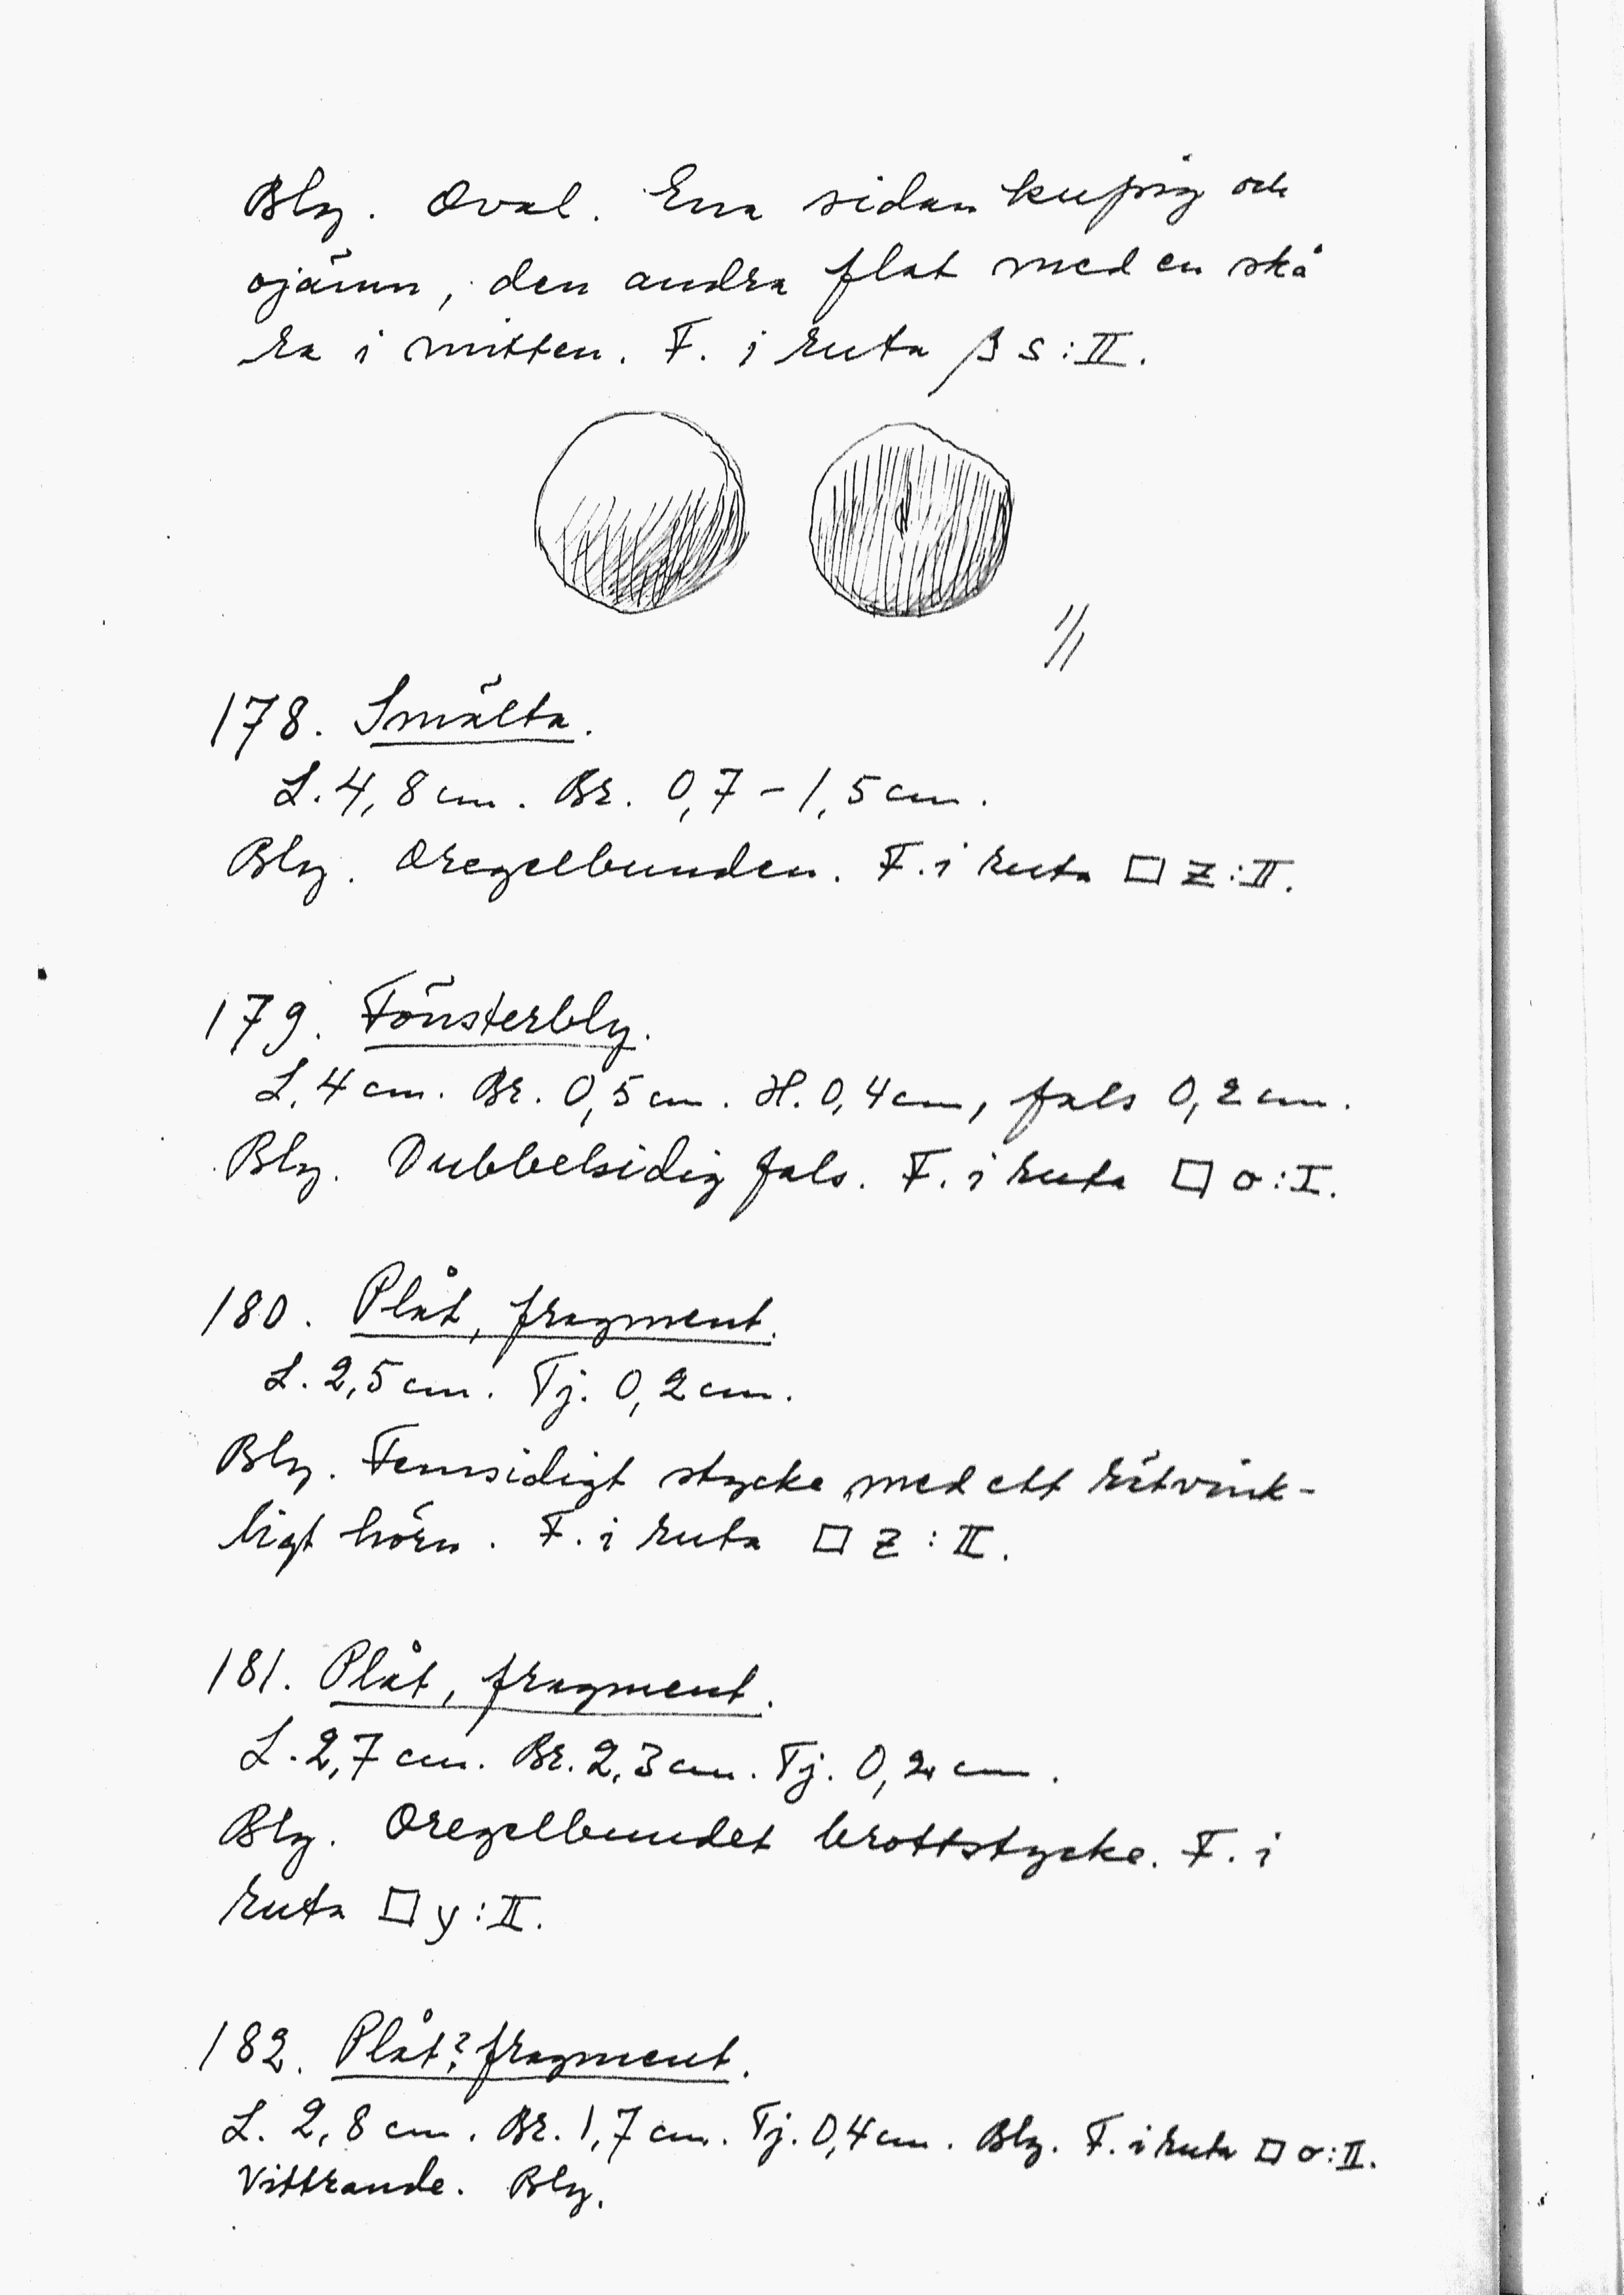 Bly. Oval. Ena sidan kupig och
ojämn, den andra flat med en skå
ra i mitten. F. i ruta β s:II.
1/1
178. Smälta.
L. 4,8 cm. Br. 0,7 - 1,5 cm.
Bly. Oregelbunden. F. i ruta □ z:II.
179. Fönsterbly.
L. 4 cm. Br. 0,5 cm. H. 0,4 cm, fals 0,2 cm.
Bly. Dubbelsidig fals. F. i ruta □ σ:I.
180. Plåt, fragment.
L. 2,5 cm. Tj. 0,2 cm.
Bly. Femsidigt stycke med ett rätvink-
ligt hörn. F. i ruta □ z:II.
181. Plåt, fragment.
L. 2,7 cm. Br. 2,3 cm. Tj. 0,2 cm.
Bly. Oregelbundet brottstycke. F. i
ruta □ y:II.
182. Plåt? fragment.
L. 2,8 cm. Br. 1,7 cm. Tj. 0,4 cm. Bly. F. i ruta □ σ:II.
Vittrande. Bly.